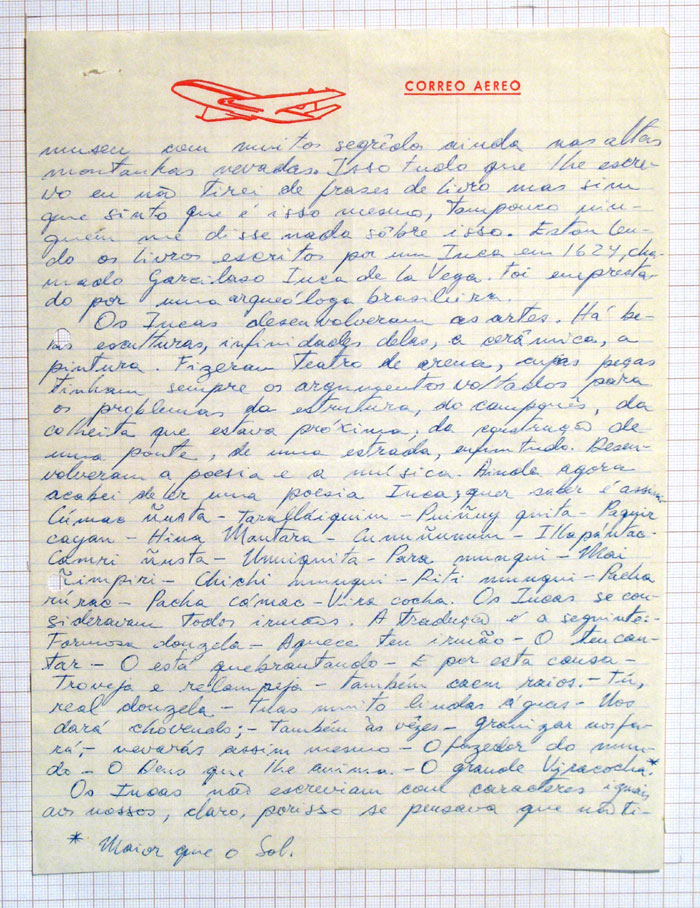 CORREO AEREO
museu com muitos segrêdos ainda nas altas
montanhas nevadas. Isso tudo que lhe escre-
vo eu não tirei de frases de livro mas sim
que sinto que é isso mesmo, tampouco nin-
guém me disse nada sôbre isso. Estou len-
do os livros escritos por um Inca em 1624, cha-
mado Garcilaso Inca de la Vega. Foi empresta-
do por uma arqueóloga brasileira.
Os Incas desenvolveram as artes. Há be-
las esculturas, infinidades delas, a cerâmica, a
pintura. Fizeram teatro de arena, cujas peças
tinham sempre os argumentos voltados para
os problemas da estrutura, do camponês, da
colheita que estava próxima, da construção de
uma ponte, de uma estrada, enfim tudo. Desen-
volveram a poesia e a música. Ainda agora
acabei de ler uma poesia Inca, quer saber é assim
Cúmac ñusta - Toralláiquim - Puiñuy quita - Paquir
cayan - Hina Mantara - Cunuñunun - Illapántac
Camri ñusta - Unuiquita - Para munqui - Mai
ñimpiri - Chichi munqui - Riti munqui - Pacha
rúrac - Pacha cámac - Vira cocha. Os Incas se con-
sideravam todos irmãos. A tradução é a seguinte:
Formosa donzela - Aquece teu irmão - O teu can-
tar - O está quebrantando - E por esta causa -
Troveja e relampeja - Também caem raios. - Tu,
real donzela - Tuas muito lindas águas - Nos
dará chovendo; - Também às vêzes - granizar nos fa-
rá; - nevarás assim mesmo - O fazedor do mun-
do - O Deus que lhe anima. - O grande Viracocha.*
Os Incas não escreviam com caracteres iguais
aos nossos, claro, porisso se pensava que não ti-
* Maior que o Sol.